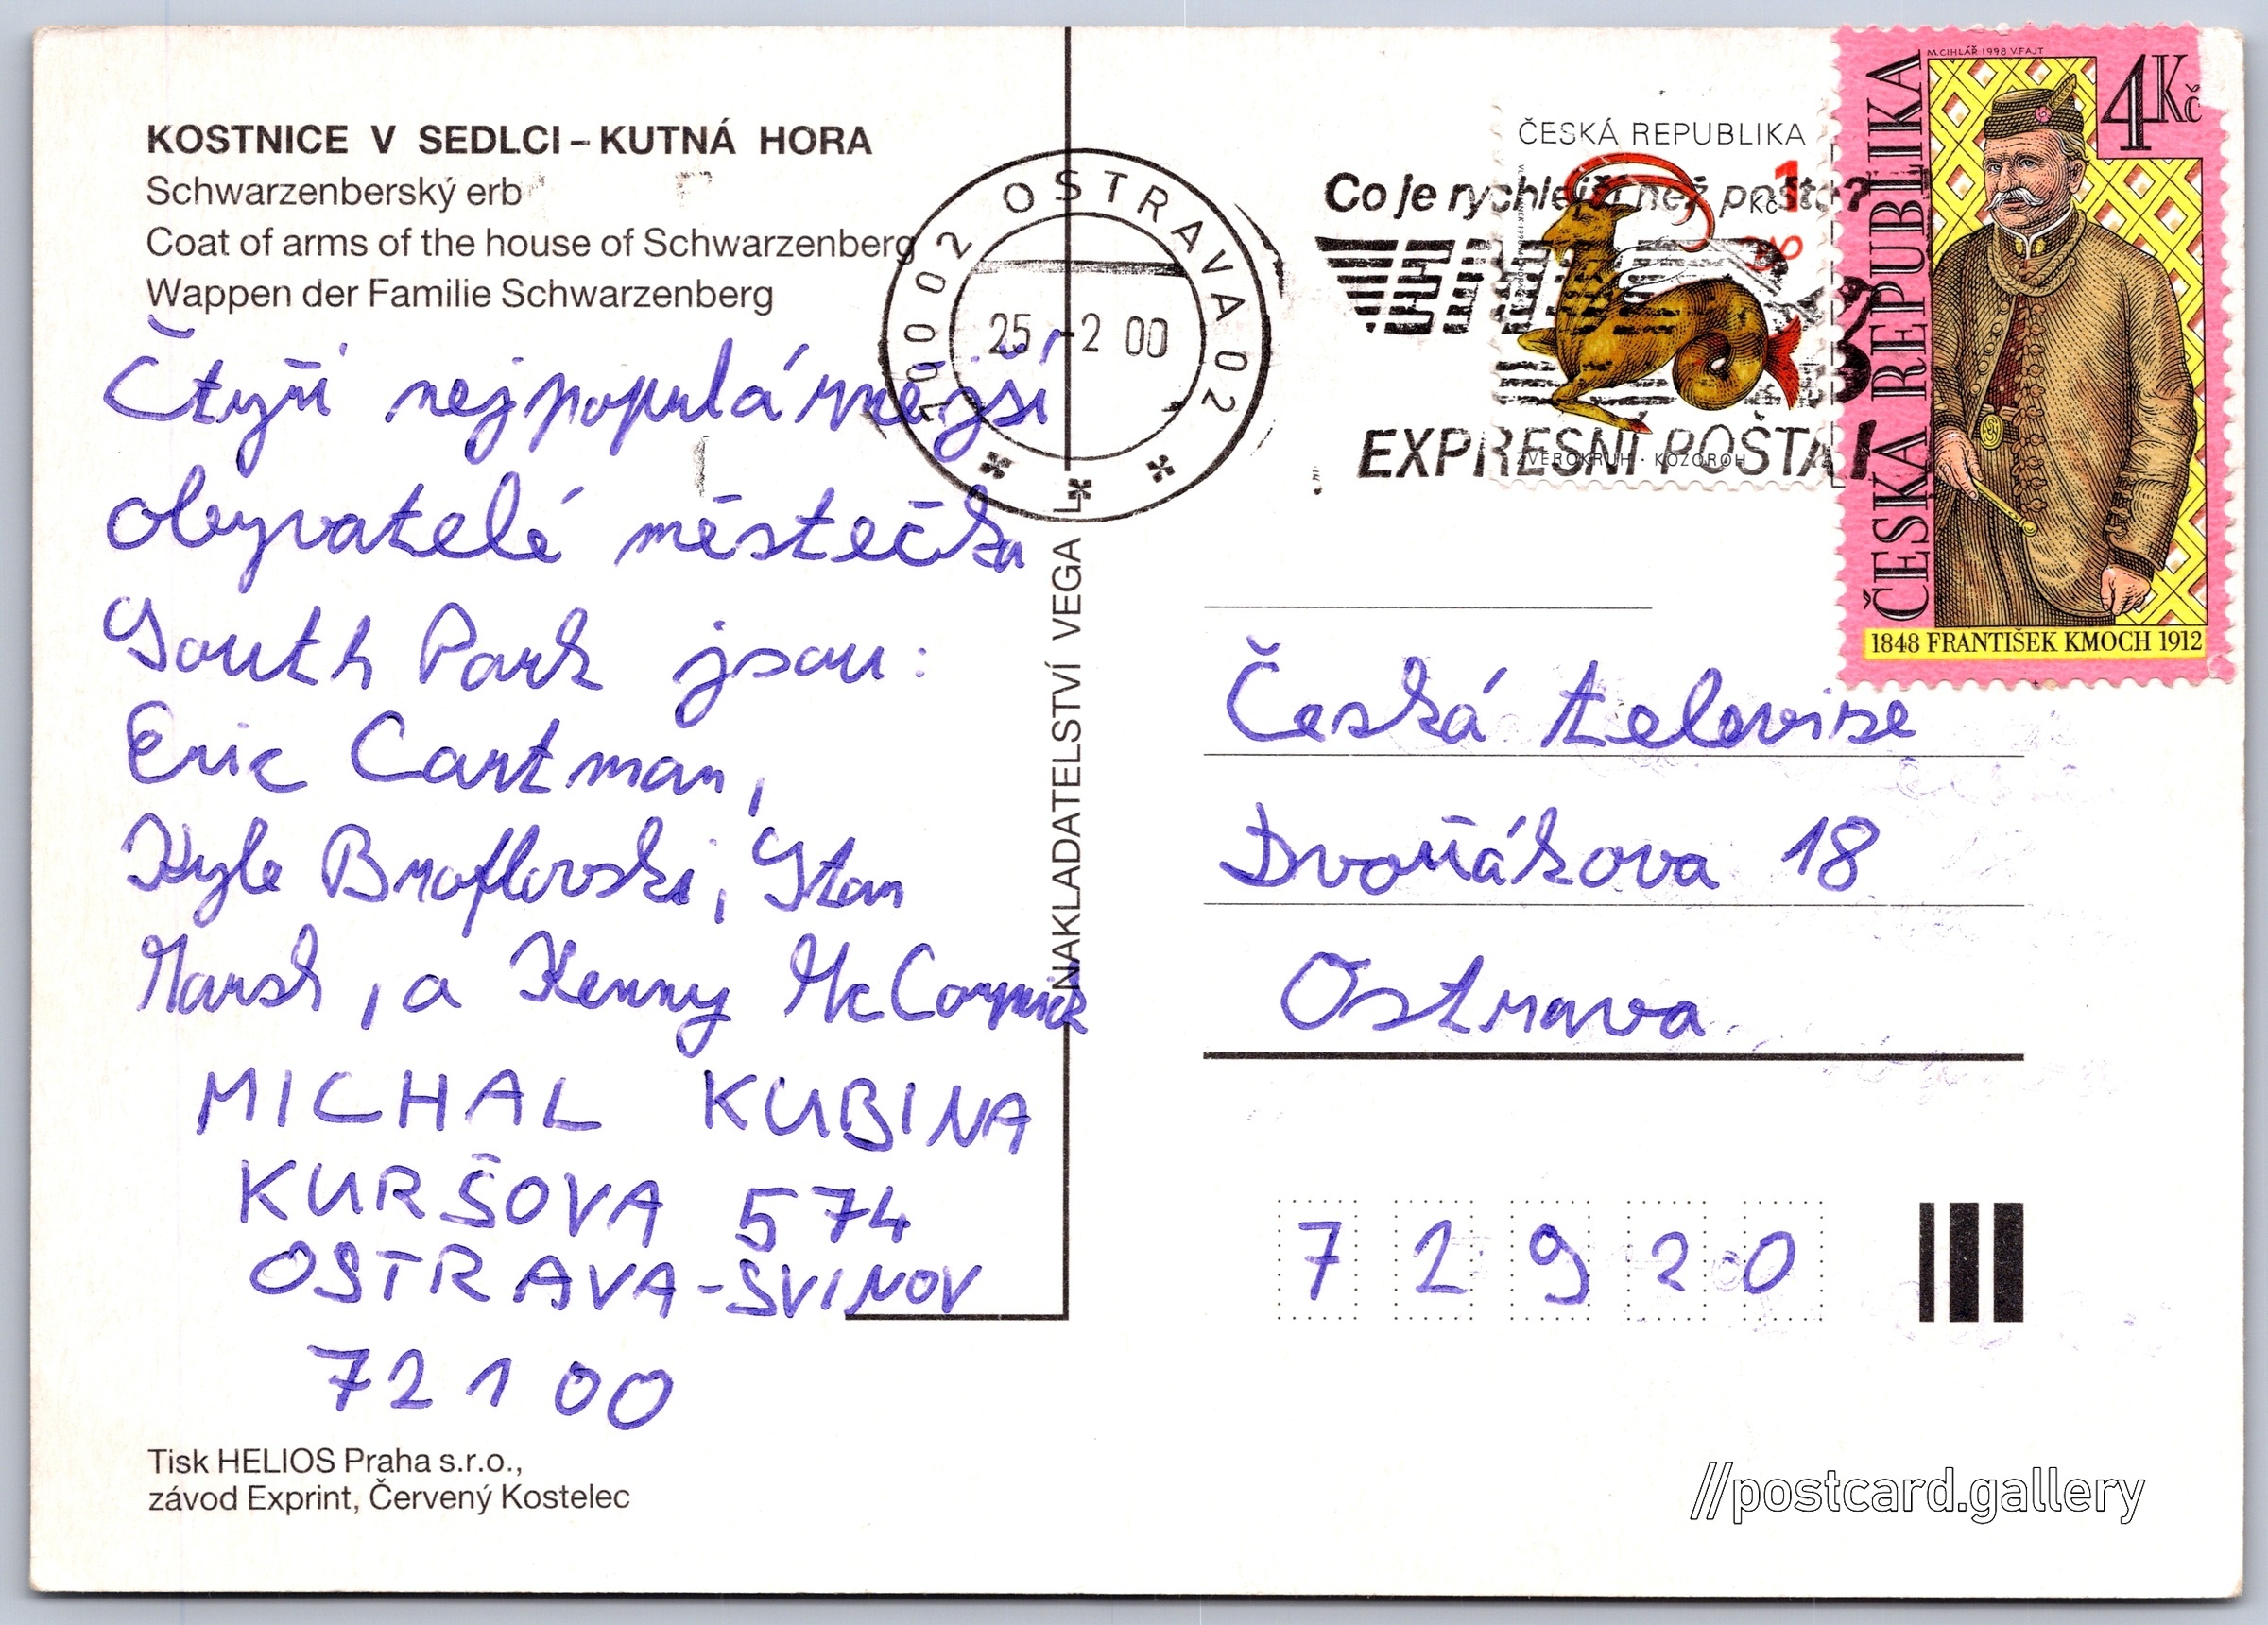 KOSTNICE V SEDLCI – KUTNÁ HORA
Schwarzenberský erb
Coat of arms of the house of Schwarzenberg
Wappen der Familie Schwarzenberg
Čtyři nejpopulárnější
obyvatelé městečka
South Park jsou:
Eric Cartman,
Kyle Broflovski, Stan
Marsh, a Kenny McCormick
MICHAL KUBINA
KURŠOVA 574
OSTRAVA-SVINOV
721 00
Tisk HELIOS Praha s.r.o.,
závod Exprint, Červený Kostelec
NAKLADATELSTVÍ VEGA L
OSTRAVA 02
790 02
25 -2 00
Co je rychlejší než pošta?
EXPRESNÍ POŠTA!
ČESKÁ REPUBLIKA
1 Kč
ZVĚROKRUH · KOZOROH
M. CIHLÁŘ 1998 V. FAJT
4 Kč
ČESKÁ REPUBLIKA
1848 FRANTIŠEK KMOCH 1912
Česká televise
Dvořákova 18
Ostrava
72920
//postcard.gallery